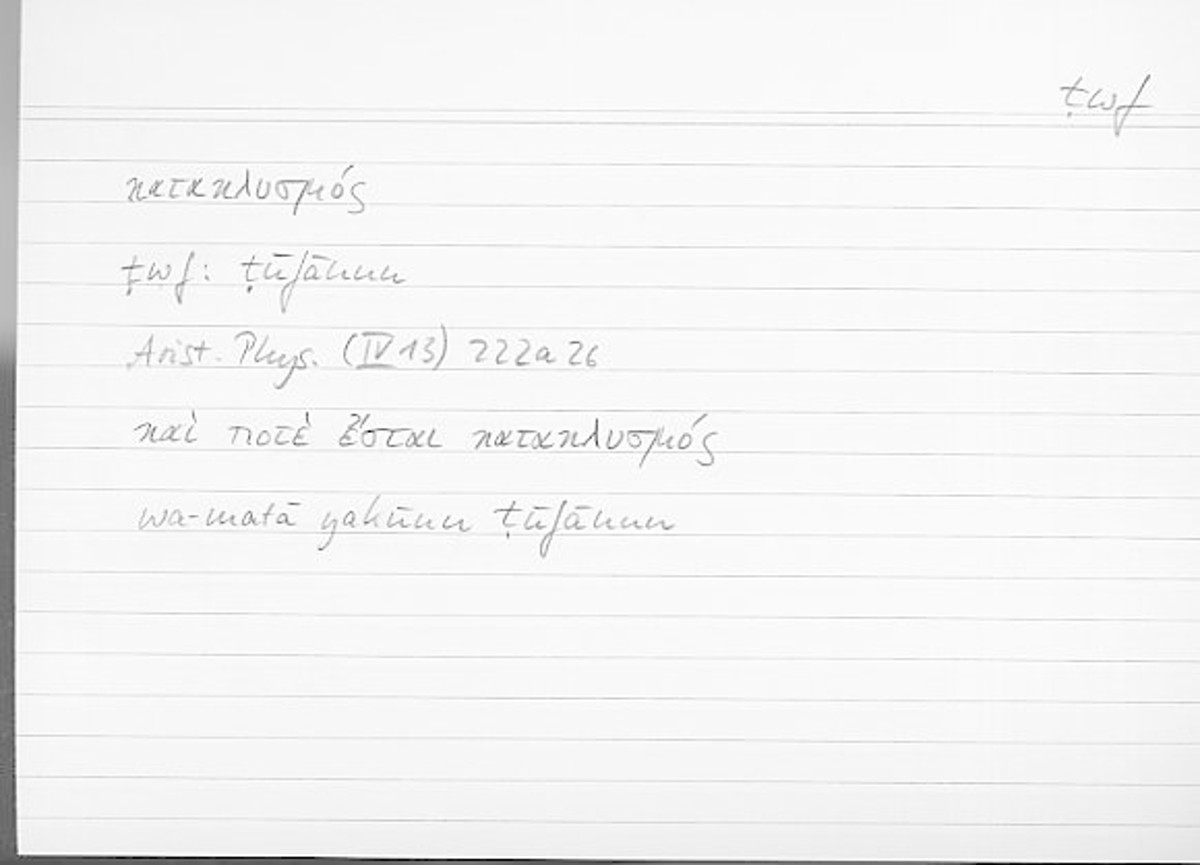 ṭwf
κατακλυσμός
ṭwf: ṭūfānun
Arist. Phys. (IV 13) 222a26
καὶ ποτὲ ἔσται κατακλυσμός
wa-matā yakūnu ṭūfānun